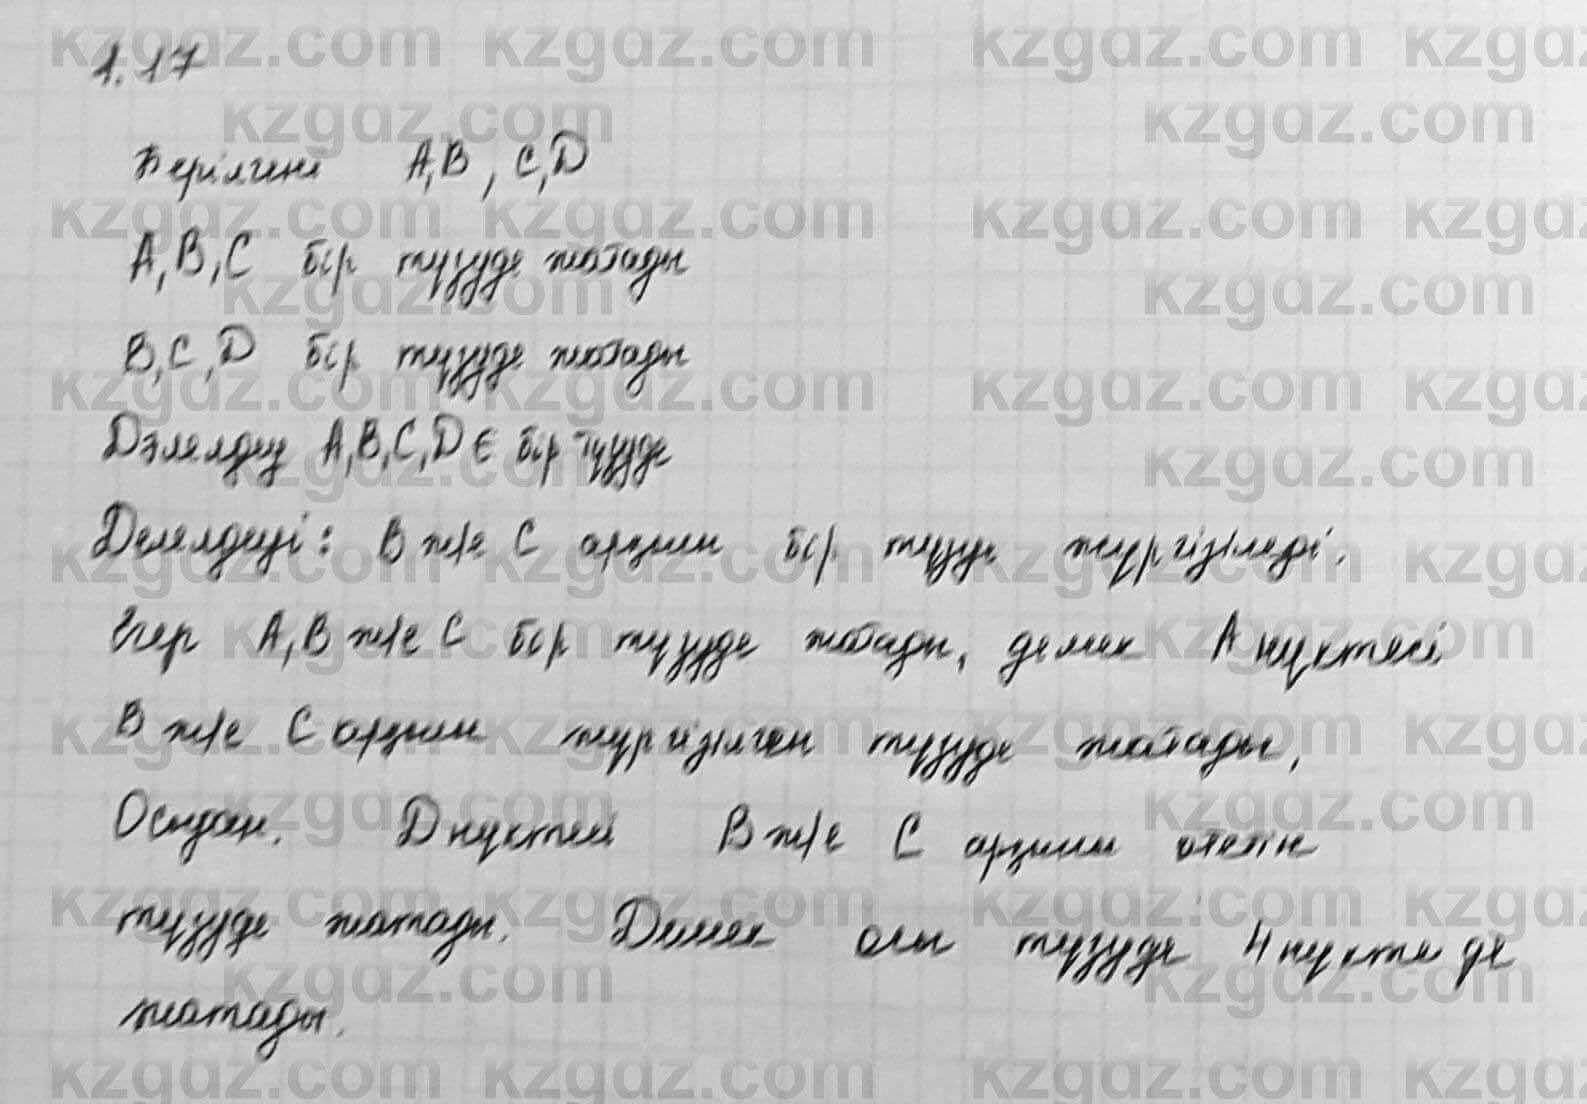 1.17
Берілгені A,B, C,D
A,B,C бір түзуде жатады
B,C,D бір түзуде жатады
Дәлелдеу A,B,C,D ∈ бір түзуде
Дәлелдеуі: B ж/е C арқылы бір түзуде жүргізіледі.
Егер A,B ж/е C бір түзуде жатады, демек A нүктесі
B ж/е C арқылы жүргізілген түзуде жатады,
Осыдан. D нүктесі B ж/е C арқылы өтетін
түзуде жатады. Демек осы түзуде 4 нүкте де
жатады.
kzgaz.com